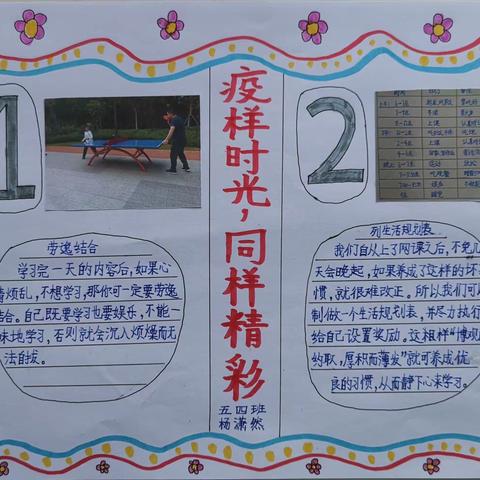 疫样时光,同样精彩
五四班
杨潇然
1
劳逸结合
学习完一天的内容后,如果心
情烦乱,不想学习,那你可一定要劳逸
结合。自己既要学习也要娱乐,不能一
味地学习,否则就会沉入烦燥而无
法自拔。
2
列生活规划表
我们自从上了网课之后,不免几
天会晚起,如果养成了这样的坏
惯,就很难改正。所以我们可
制做一个生活规划表,并尽力执行
给自己设置奖励。这相样“博观
约取,厚积而薄发”就可养成优
良的习惯,从而静下心来学习。